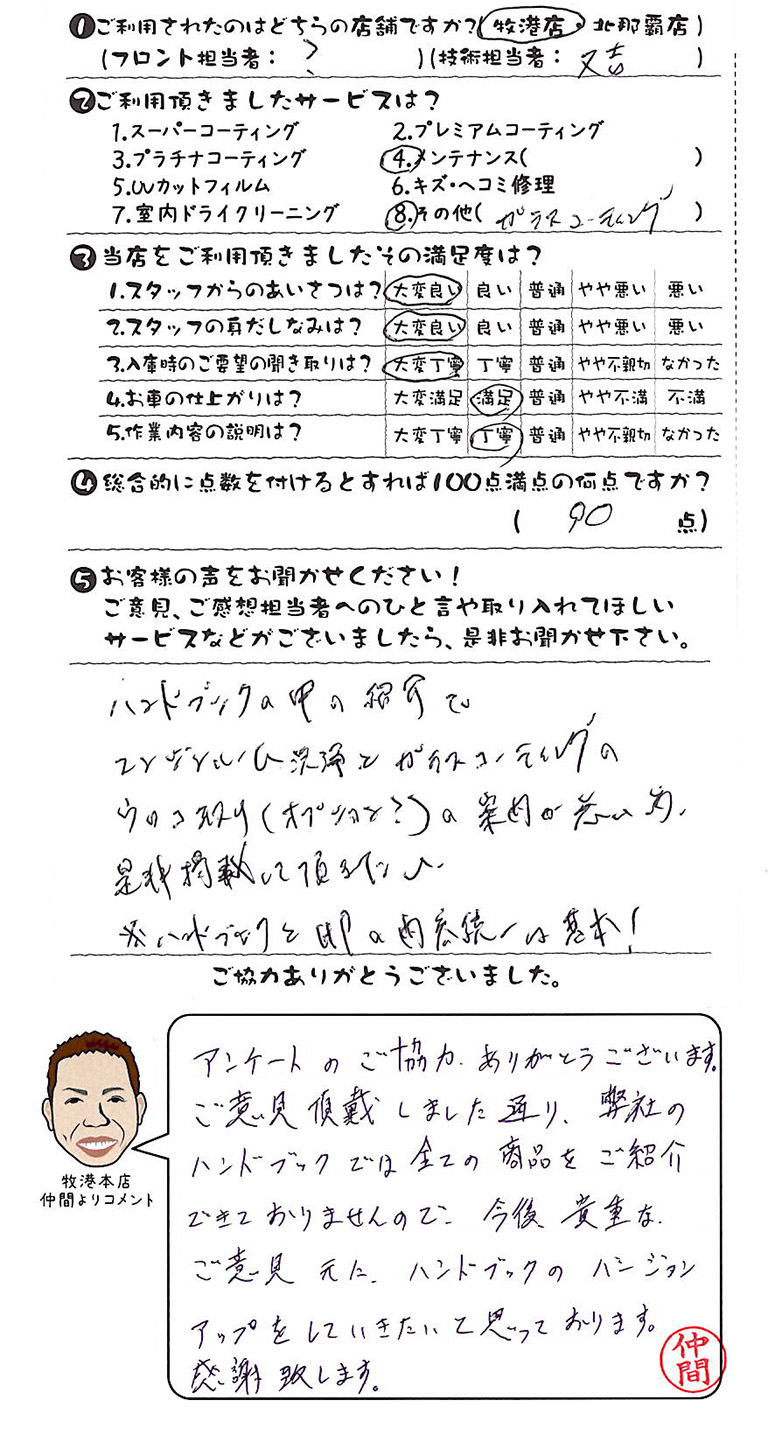 ❶ご利用されたのはどちらの店舗ですか?(牧港店・北那覇店)
(フロント担当者: ? )(技術担当者: 又吉 )
❷ご利用頂きましたサービスは?
1.スーパーコーティング 2.プレミアムコーティング
3.プラチナコーティング 4.メンテナンス( )
5.UVカットフィルム 6.キズ・ヘコミ修理
7.室内ドライクリーニング 8.その他( ガラスコーティング )
❸当店をご利用頂きましたその満足度は?
1.スタッフからのあいさつは? 大変良い 良い 普通 やや悪い 悪い
2.スタッフの身だしなみは? 大変良い 良い 普通 やや悪い 悪い
3.入庫時のご要望の聞き取りは? 大変丁寧 丁寧 普通 やや不親切 なかった
4.お車の仕上がりは? 大変満足 満足 普通 やや不満 不満
5.作業内容の説明は? 大変丁寧 丁寧 普通 やや不親切 なかった
❹総合的に点数を付けるとすれば100点満点の何点ですか?
( 90 点)
❺お客様の声をお聞かせください!
ご意見、ご感想担当者へのひと言や取り入れてほしい
サービスなどがございましたら、是非お聞かせ下さい。
ハンドブックの中の紹介で
エンジンルーム洗浄とガラスコーティングの
ウロコ取り(オプション?)の案内が無い為、
是非掲載して頂きたい
※ハンドブックとHPの内容統一は基本!
ご協力ありがとうございました。
アンケートのご協力、ありがとうございます。
ご意見頂戴しました通り、弊社の
ハンドブックでは全ての商品をご紹介
できておりませんので、今後、貴重な、
ご意見元に、ハンドブックのバージョン
アップをしていきたいと思っております。
感謝致します。
牧港本店
仲間よりコメント
仲間